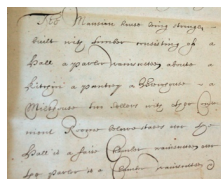 The Mansion house being strongly
built with timber consisting of a
Hall a parlor wainscotted about a
kitchin a pantry a
Milkhouse two Sellers with
Roomes belowe staires over the
Hall is a faire Chamber wainscotted over
the parlor is a Chamber wainscotted